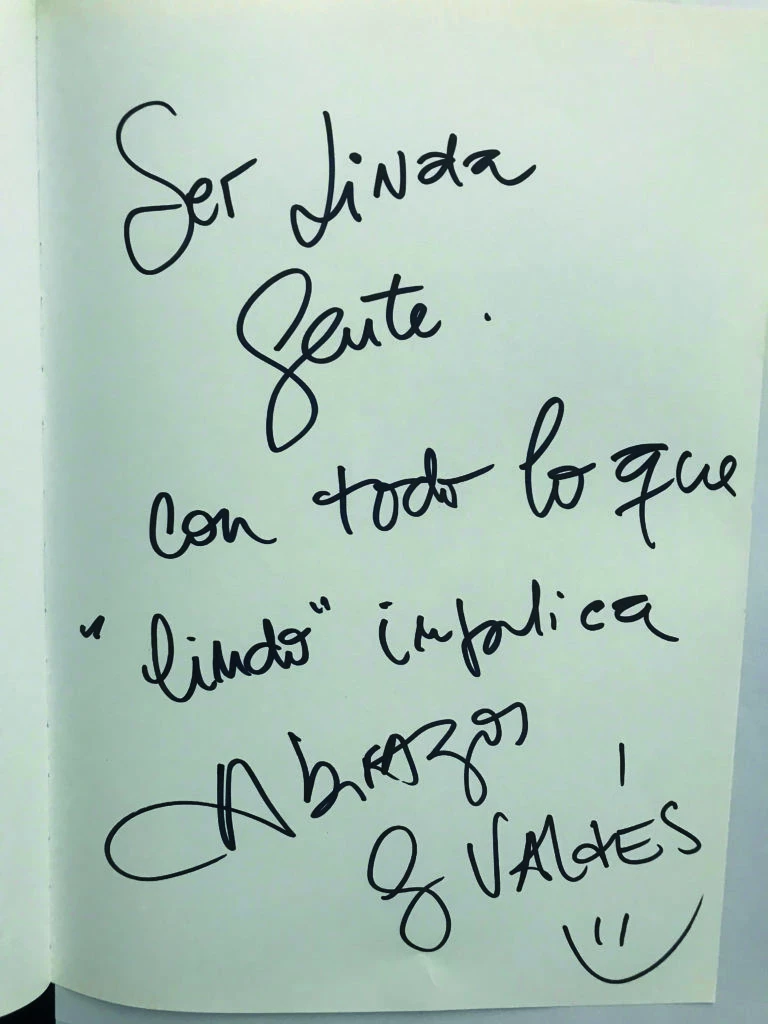 Ser Linda
Gente.
con todo lo que
"lindo" implica
Abrazos
G VALdÉS